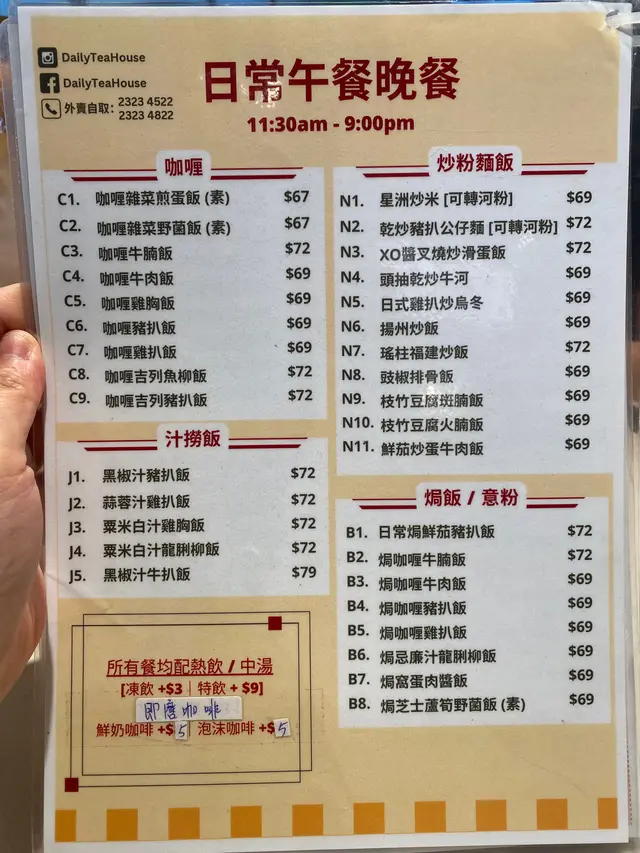 DailyTeaHouse
DailyTeaHouse
外賣自取: 2323 4522
2323 4822
日常午餐晚餐
11:30am - 9:00pm
咖喱
C1. 咖喱雜菜煎蛋飯 (素) $67
C2. 咖喱雜菜野菌飯 (素) $67
C3. 咖喱牛腩飯 $72
C4. 咖喱牛肉飯 $69
C5. 咖喱雞胸飯 $69
C6. 咖喱豬扒飯 $69
C7. 咖喱雞扒飯 $69
C8. 咖喱吉列魚柳飯 $72
C9. 咖喱吉列豬扒飯 $72
汁撈飯
J1. 黑椒汁豬扒飯 $72
J2. 蒜蓉汁雞扒飯 $72
J3. 粟米白汁雞胸飯 $72
J4. 粟米白汁龍脷柳飯 $72
J5. 黑椒汁牛扒飯 $79
所有餐均配熱飲 / 中湯
[凍飲 +$3 | 特飲 + $9]
即磨咖啡
鮮奶咖啡 +$5 泡沫咖啡 +$5
炒粉麵飯
N1. 星洲炒米 [可轉河粉] $69
N2. 乾炒豬扒公仔麵 [可轉河粉] $72
N3. XO醬叉燒炒滑蛋飯 $72
N4. 頭抽乾炒牛河 $69
N5. 日式雞扒炒烏冬 $69
N6. 揚州炒飯 $69
N7. 瑤柱福建炒飯 $72
N8. 豉椒排骨飯 $69
N9. 枝竹豆腐斑腩飯 $69
N10. 枝竹豆腐火腩飯 $69
N11. 鮮茄炒蛋牛肉飯 $69
焗飯 / 意粉
B1. 日常焗鮮茄豬扒飯 $72
B2. 焗咖喱牛腩飯 $72
B3. 焗咖喱牛肉飯 $69
B4. 焗咖喱豬扒飯 $69
B5. 焗咖喱雞扒飯 $69
B6. 焗忌廉汁龍脷柳飯 $69
B7. 焗窩蛋肉醬飯 $69
B8. 焗芝士蘆筍野菌飯 (素) $69